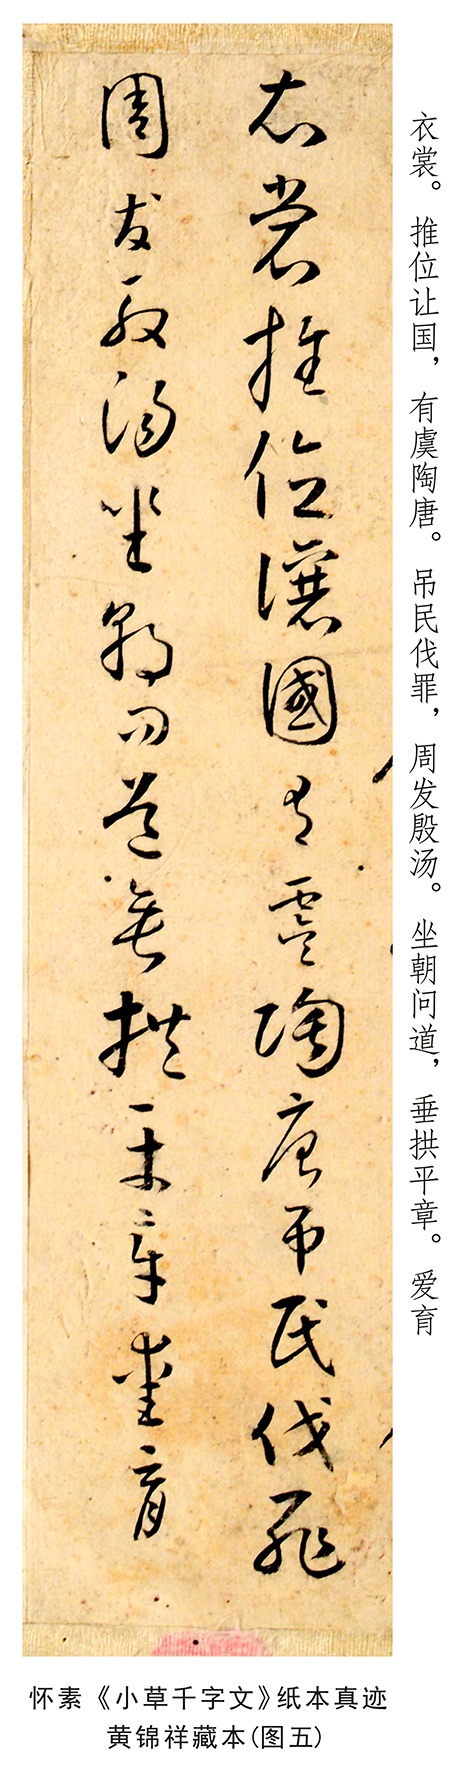 衣裳。推位让国，有虞陶唐。吊民伐罪，周发殷汤。坐朝问道，垂拱平章。爱育
衣裳推位讓國有虞陶唐吊民伐罪
周發殷湯坐朝問道垂拱平章愛育
怀素《小草千字文》纸本真迹
黄锦祥藏本(图五)